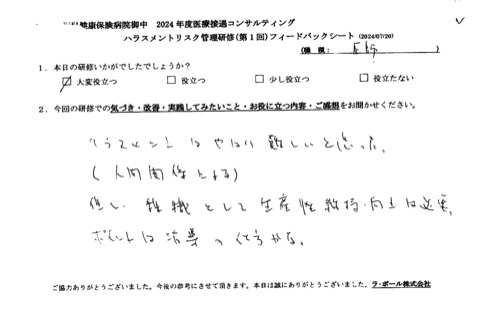 健康保険病院御中 2024年度医療接遇コンサルティング
ハラスメントリスク管理研修(第1回)フィードバックシート (2024/07/20)
(職種: 医師 )
1．本日の研修いかがでしたでしょうか？
☑ 大変役立つ □ 役立つ □ 少し役立つ □ 役立たない
2．今回の研修での気づき・改善・実践してみたいこと・お役に立つ内容・ご感想をお聞かせください。
ハラスメントはやはり難しいと思った。
(人間関係による)
但し、組織として生産性維持・向上は必要。
ポイントは指導の
ご協力ありがとうございました。今後の参考にさせて頂きます。本日は誠にありがとうございました。ラ・ポール株式会社